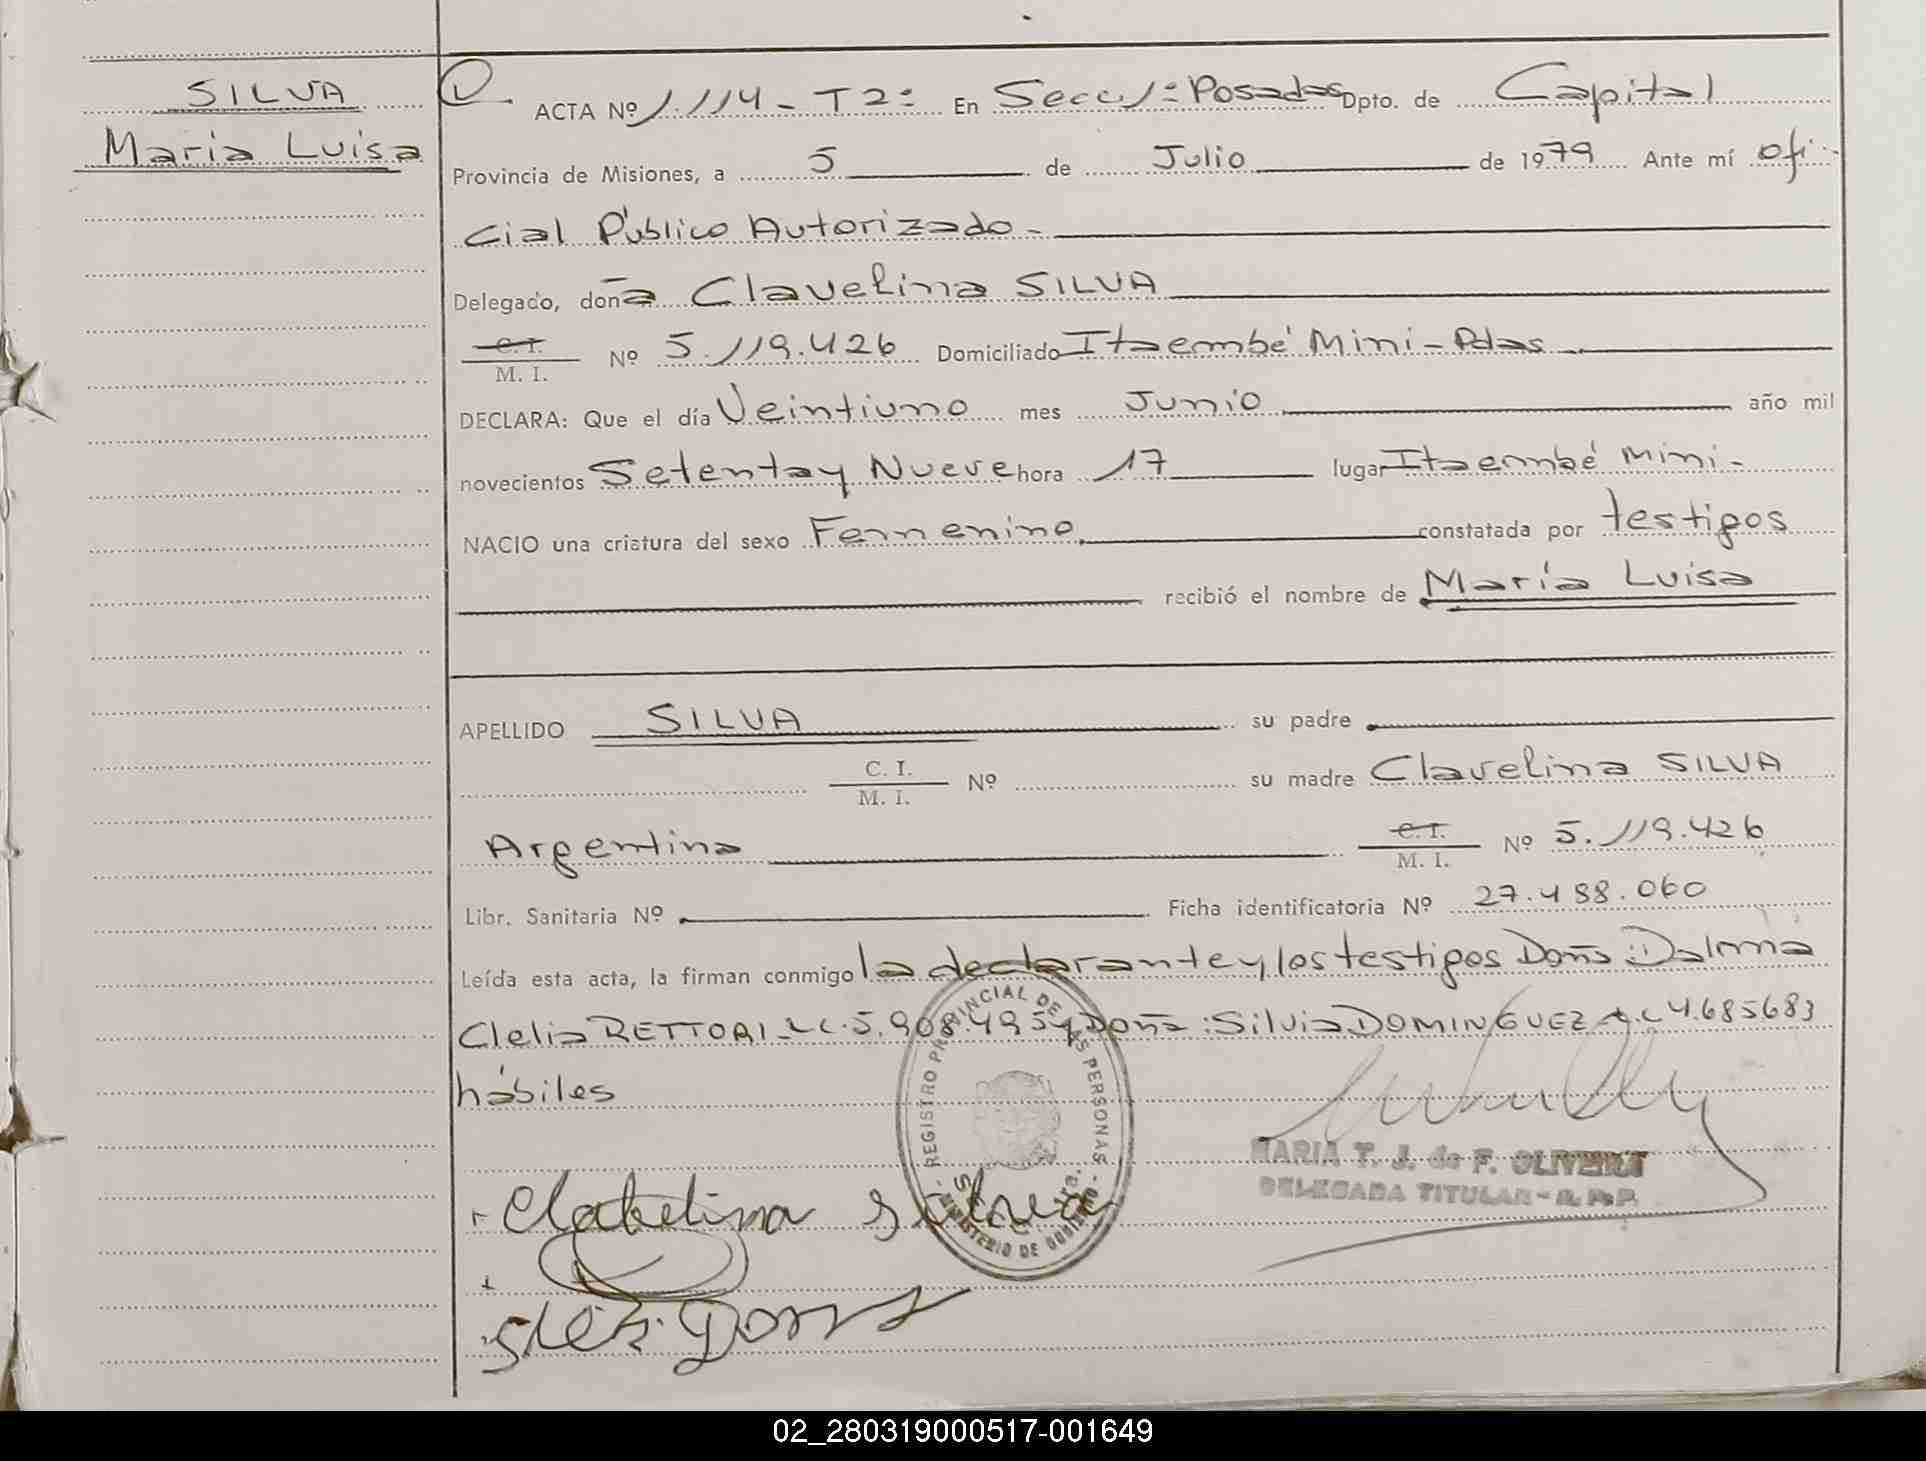 SILVA
Maria Luisa
ACTA Nº 1.114 - T2: En Secc 1: Posadas Dpto. de Capital
Provincia de Misiones, a 5 de Julio de 1979 Ante mí ofi-
cial Público Autorizado -
Delegado, doña Clavelina SILVA
C. I.
M. I. Nº 5.119.426 Domiciliado Itaembé Mini - Pdas
DECLARA: Que el día Veintiuno mes Junio año mil
novecientos Setenta y Nueve hora 17 lugar Itaembé Mini -
NACIO una criatura del sexo Femenino constatada por testigos
recibió el nombre de María Luisa
APELLIDO SILVA su padre
C. I.
M. I. Nº su madre Clavelina SILVA
Argentina C. I.
M. I. Nº 5.119.426
Libr. Sanitaria Nº Ficha identificatoria Nº 27.488.060
Leída esta acta, la firman conmigo la declarante y los testigos Doña: Dalma
Clelia RETTORI - LC. 5.908.495 y Doña: Silvia DOMINGUEZ LC 4.685683
hábiles
REGISTRO PROVINCIAL DE LAS PERSONAS
MINISTERIO DE GOBIERNO
MARIA T. J. de F. OLIVEIRA
DELEGADA TITULAR - R. P. P.
Clabelina Silva
02_280319000517-001649